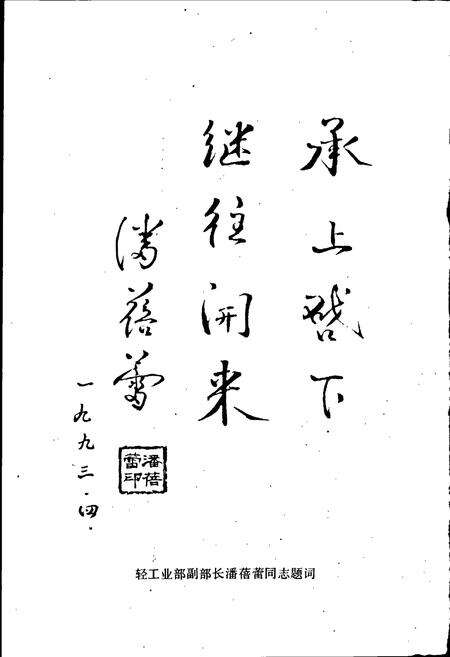 承上啓下
继往开来
潘蓓蕾
一九九三.四.
潘蓓
蕾印
轻工业部副部长潘蓓蕾同志题词